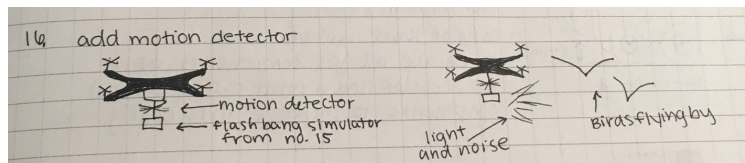 16. add motion detector
motion detector
flash bang simulator
from no. 15
light
and noise
Birds flying by